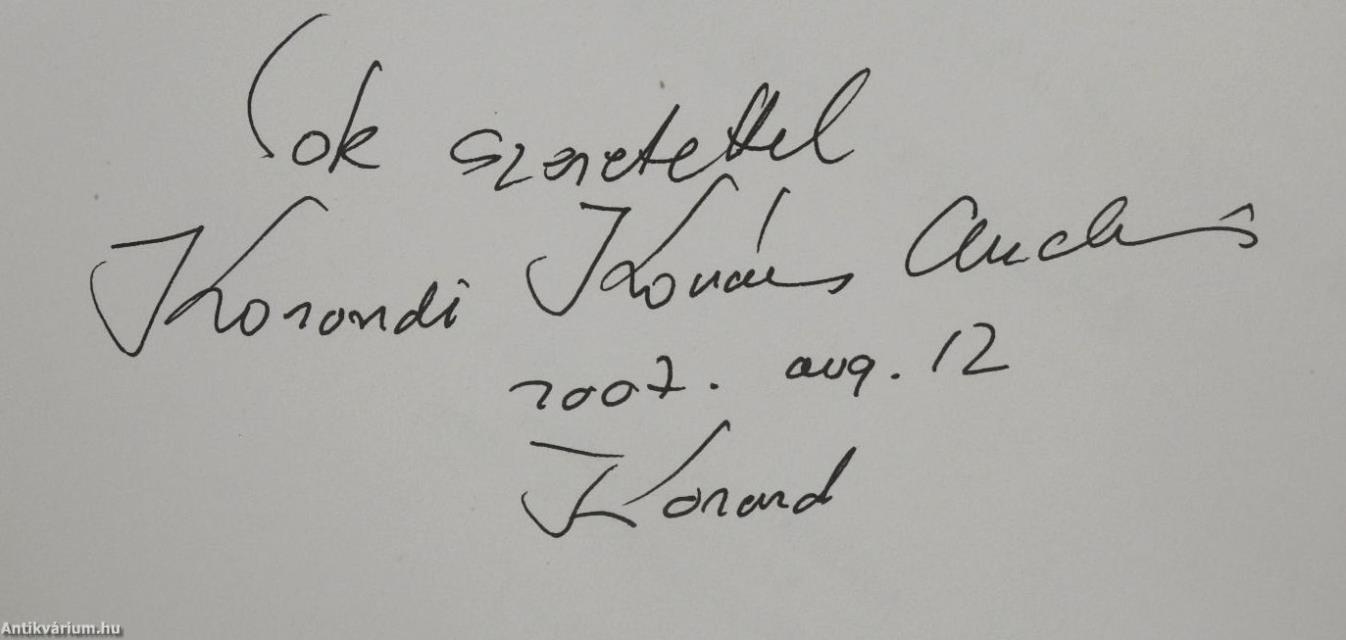 Sok szeretettel
Korondi Kovács András
2007. aug. 12
Korond
Antikvárium.hu